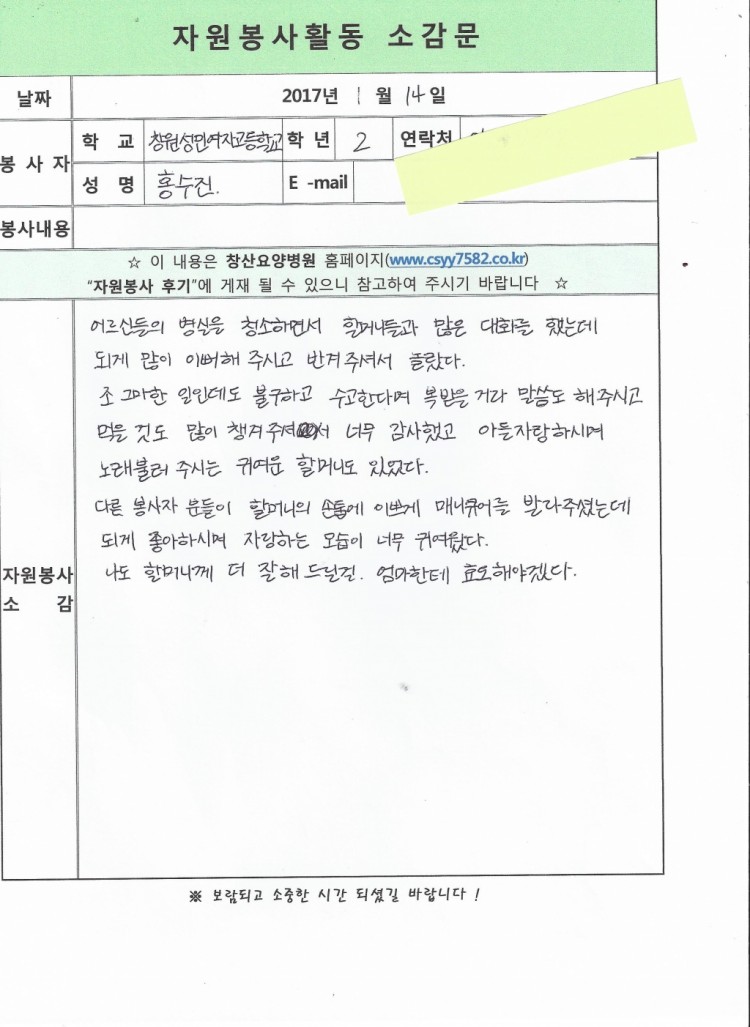 자원봉사활동 소감문
날짜 2017년 1 월 14일
봉사자 학교 창원성민여자고등학교 학년 2 연락처
성명 홍수진. E -mail
봉사내용
☆ 이 내용은 창산요양병원 홈페이지(www.csyy7582.co.kr)
“자원봉사 후기”에 게재 될 수 있으니 참고하여 주시기 바랍니다 ☆
어르신들의 병실을 청소하면서 할머니들과 많은 대화를 했는데
되게 많이 이뻐해 주시고 반겨주셔서 놀랐다.
조그마한 일인데도 불구하고 수고한다며 복받을 거라 말씀도 해주시고
먹을 것도 많이 챙겨주셔서 너무 감사했고 아들자랑하시며
노래불러 주시는 귀여운 할머니도 있었다.
다른 봉사자 분들이 할머니의 손톱에 이쁘게 매니큐어를 발라주셨는데
되게 좋아하시며 자랑하는 모습이 너무 귀여웠다.
나도 할머니께 더 잘해 드릴걸. 엄마한테 효도해야겠다.
자원봉사
소 감
※ 보람되고 소중한 시간 되셨길 바랍니다 !